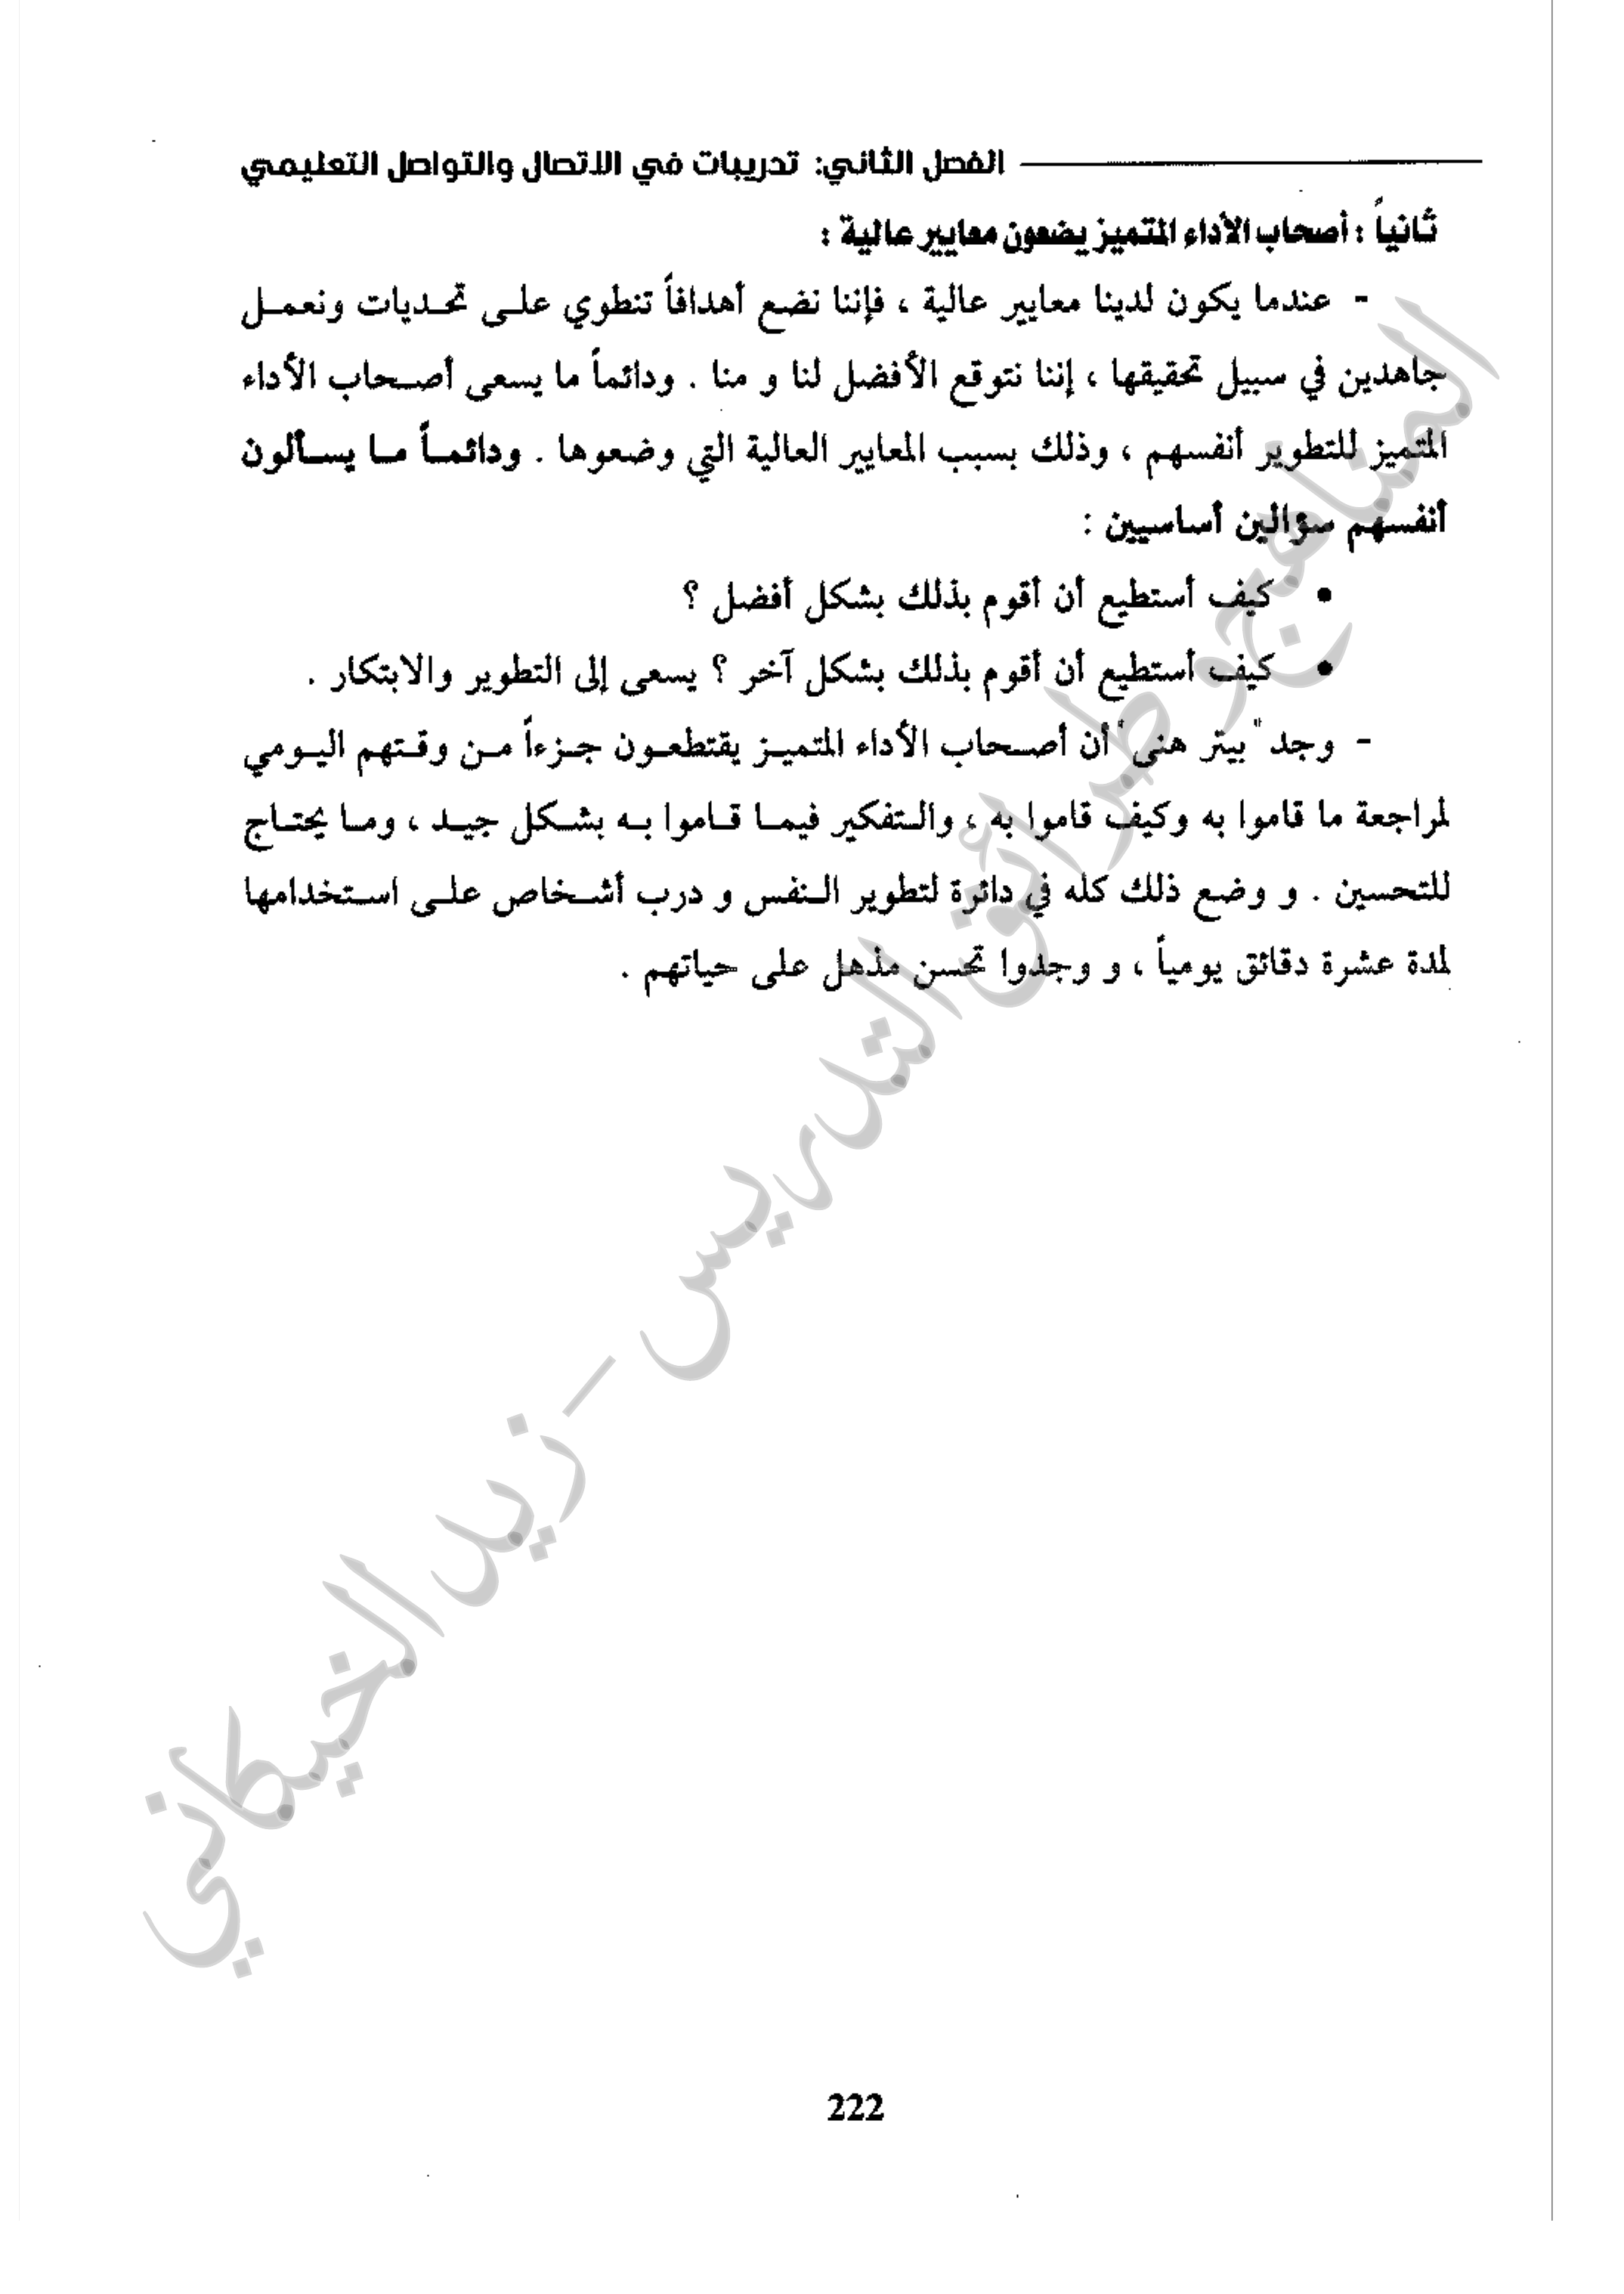 الفصل الثاني: تدريبات في الاتصال والتواصل التعليمي
ثانياً : أصحاب الأداء المتميز يضعون معايير عالية :
- عندما يكون لدينا معايير عالية ، فإننا نضع أهدافاً تنطوي على تحديات ونعمل
جاهدين في سبيل تحقيقها ، إننا نتوقع الأفضل لنا و منا . ودائماً ما يسعى أصحاب الأداء
المتميز للتطوير أنفسهم ، وذلك بسبب المعايير العالية التي وضعوها . ودائماً ما يسألون
أنفسهم سؤالين أساسيين :
• كيف أستطيع أن أقوم بذلك بشكل أفضل ؟
• كيف أستطيع أن أقوم بذلك بشكل آخر ؟ يسعى إلى التطوير والابتكار .
- وجد "بيتر هنى" أن أصحاب الأداء المتميز يقتطعون جزءاً من وقتهم اليومي
لمراجعة ما قاموا به وكيف قاموا به ، والتفكير فيما قاموا به بشكل جيد ، وما يحتاج
للتحسين . و وضع ذلك كله في دائرة لتطوير النفس و درب أشخاص على استخدامها
لمدة عشرة دقائق يومياً ، و وجدوا تحسن مذهل على حياتهم .
المناهج وطرائق التدريس - زيد الخيكاني
222